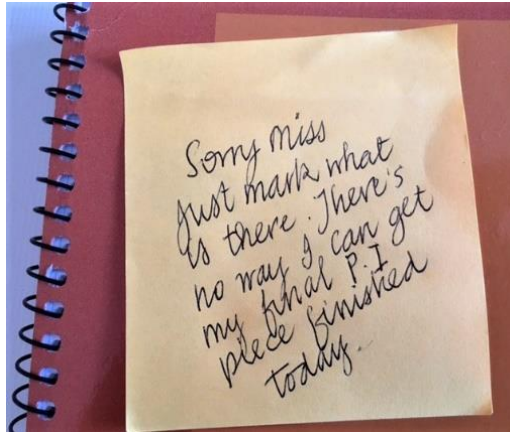 Sorry Miss
just mark what
is there. There's
no way I can get
my final P.I
piece finished
today.